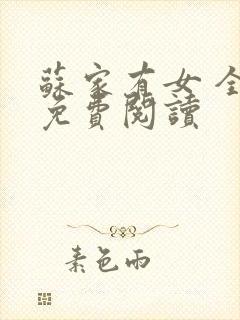 蘇家有女 全
免費閱讀
素色雨